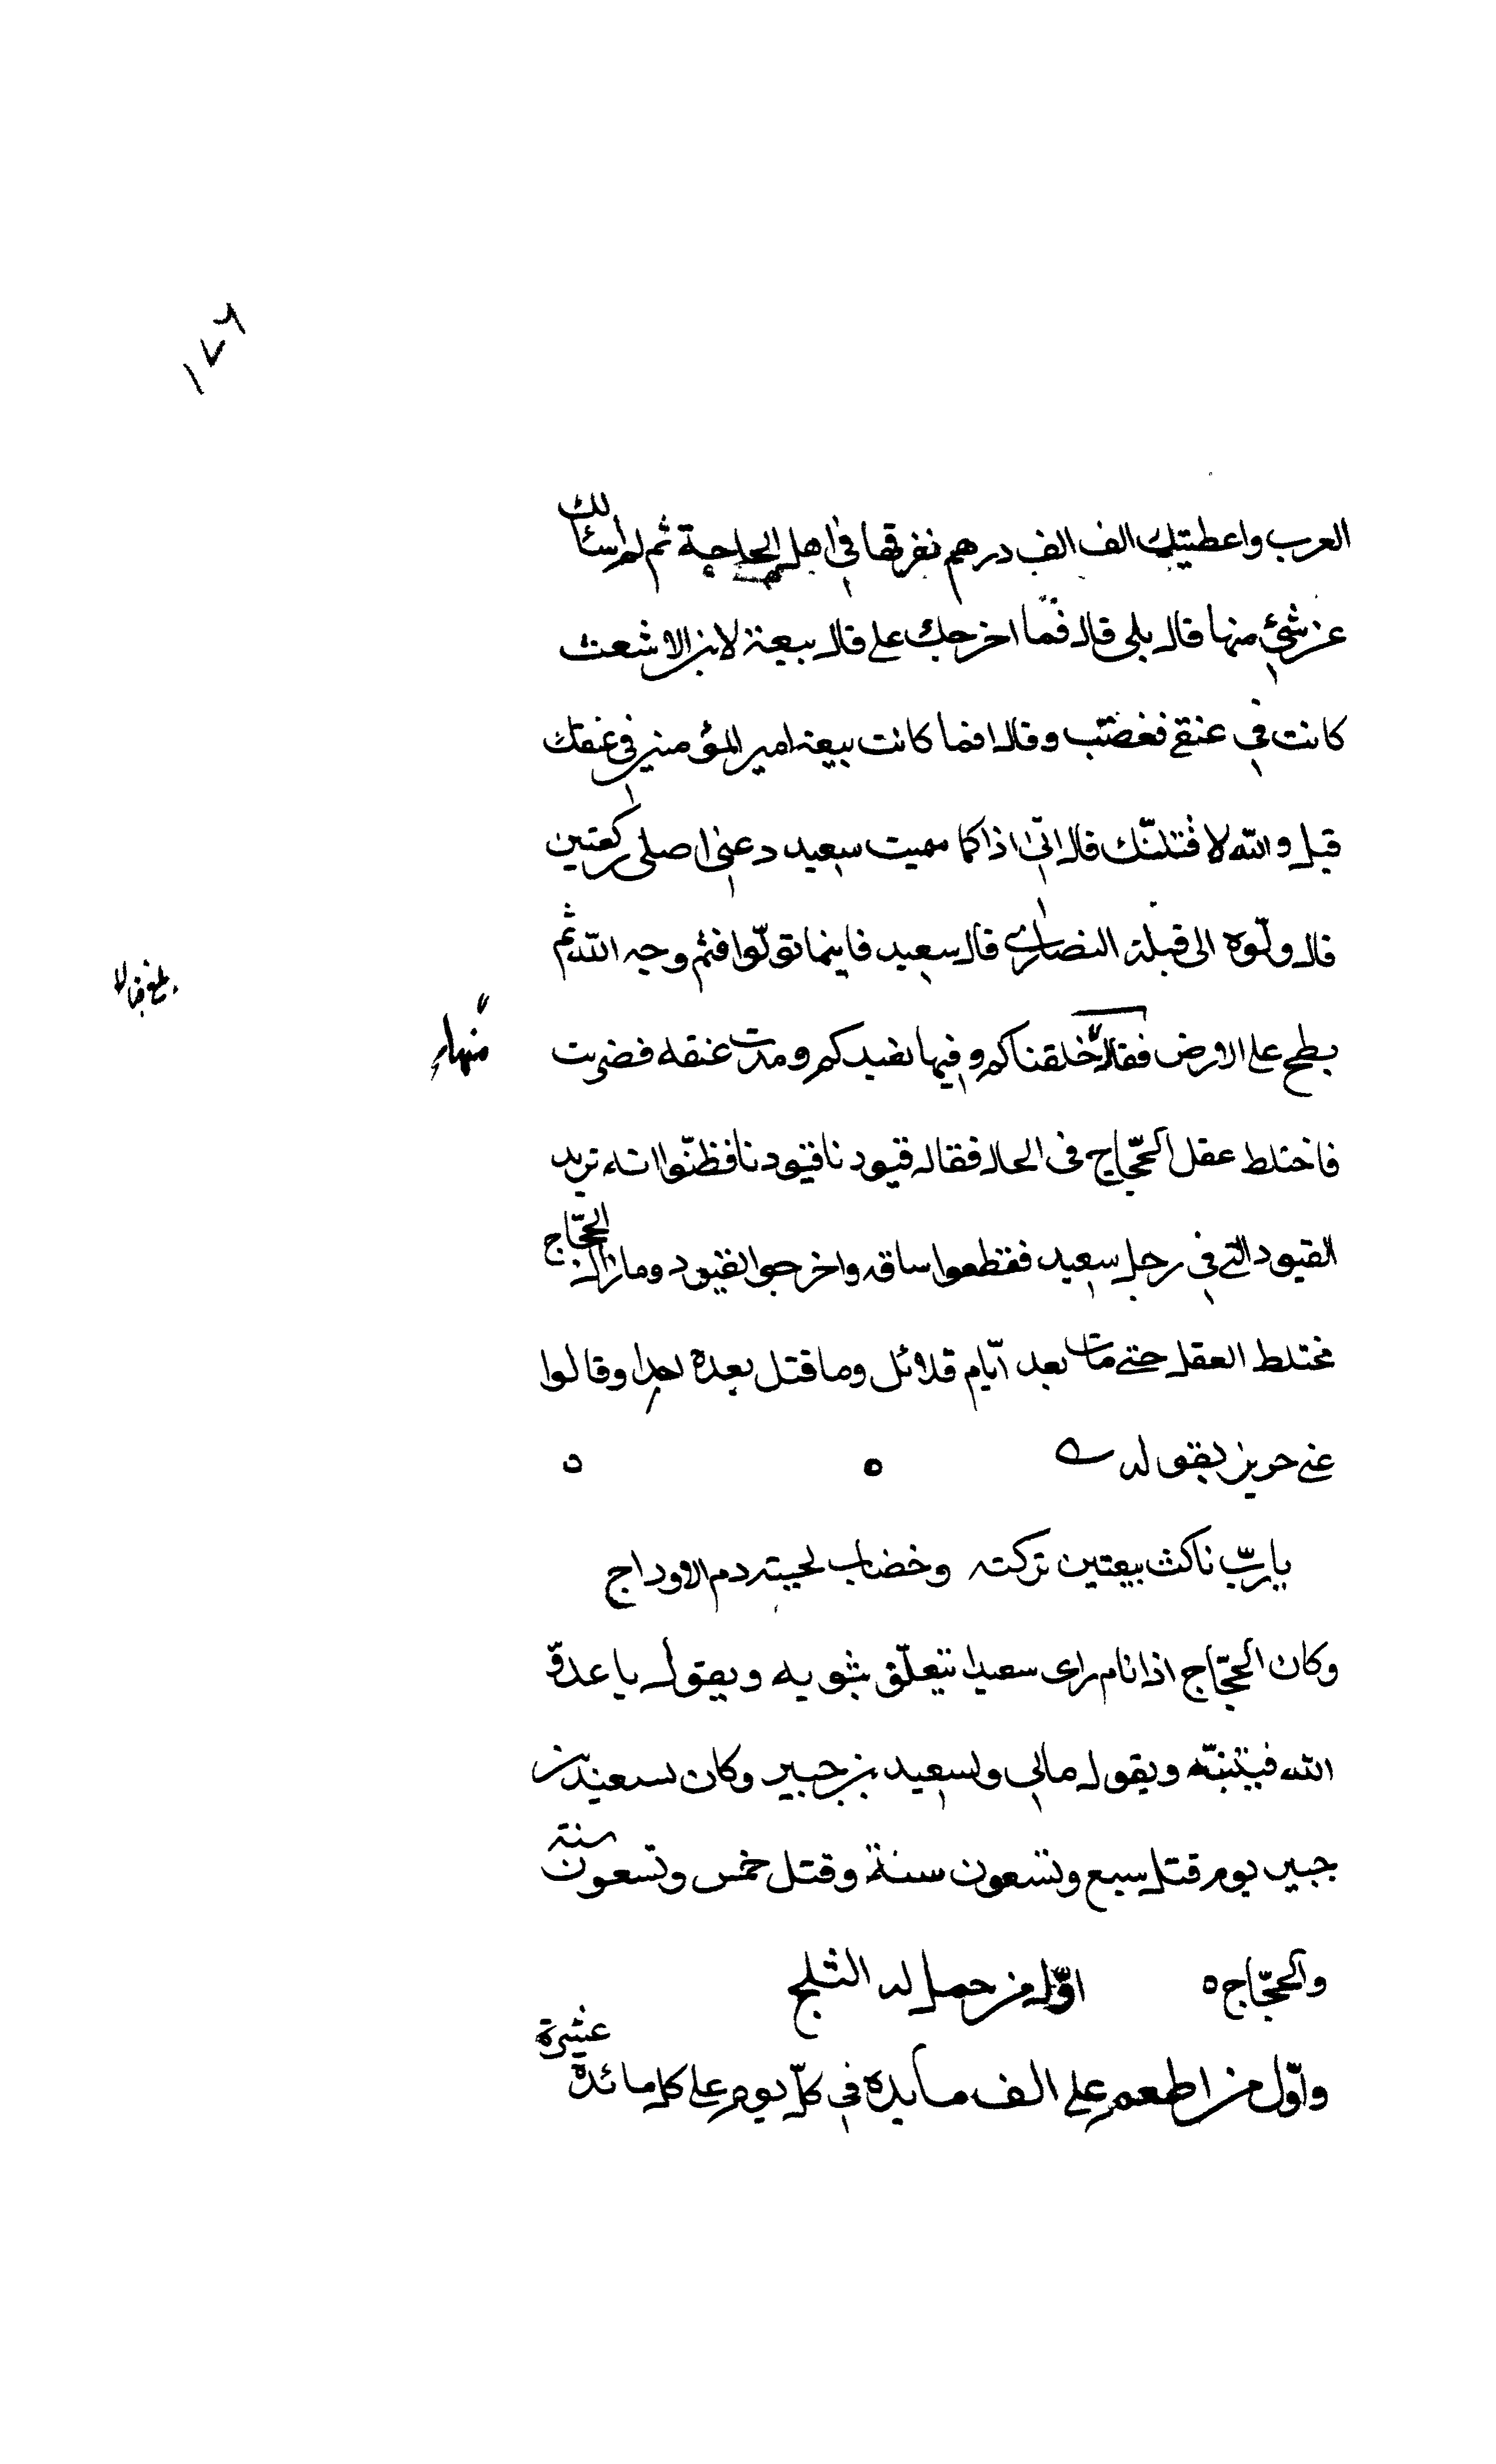 ١٧٦
العرب واعطيتك الف الف درهم نفرقها في اهل الحاجة ثم لم اسئالك
عن شئ منها قال بلى قال فما اخرجك على قال بيعة لابن الاشعث
كانت في عنقي فغضب وقال افما كانت بيعة امير المؤمنين في عنقك
قبل والله لاقتلنّك قال انّي اذا كما سميت سعيد دعني اصلى ركعتين
قال ولّوه الى قبلة النصارى قال سعيد فاينما تولّوا فثم وجه الله ثم
بطح على الارض فقال منها خلقناكم وفيها نعيدكم ومدت عنقه فضربت
فاختلط عقل الحجّاج في الحال فقال قيودنا قيودنا فظنّوا انه تريد
القيود التي في رجل سعيد فقطعوا ساقه واخرجوا القيود وما زال الحجّاج
مختلط العقل حتى مات بعد ايّام قلائل وما قتل بعده احدا وقالوا
عنى جرير بقوله
يا ربّ ناكث بيعتين تركته وخضاب لحيته دم الاوداج
وكان الحجّاج اذا نام راى سعيدا يتعلّق بثوبه ويقول يا عدوّ
الله فينتبّه ويقول مالي ولسعيد بن جبير وكان سعيد بن
جبير يوم قتل سبع وتسعون سنة وقتل خمس وتسعون سنة
والحجّاج ه اوّل من حمل له الثلج
واوّل من اطعم على الف مايدة في كلّ يوم على كل مائدة عشرة